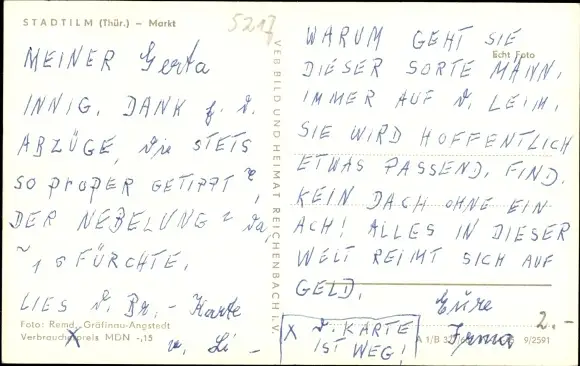 STADTILM (Thür.) – Markt
5217
MEINER Gerta
INNIG. DANK f. d.
ABZÜGE, die STETS
SO proper GETIPPT
DER NEBELUNG da,
FÜRCHTE.
LIES d. Br. – Karte
v. Li –
Foto: Remd., Gräfinau-Angstedt
Verbraucherpreis MDN -,15
VEB BILD UND HEIMAT REICHENBACH I. V.
Echt Foto
WARUM GEHT SIE
DIESER SORTE MÄNN.
IMMER AUF d. LEIM.
SIE WIRD HOFFENTLICH
ETWAS PASSEND. FIND.
KEIN DACH OHNE EIN
ACH! ALLES IN DIESER
WELT REIMT SICH AUF
GELD.
Eure
Irma
2.-
X d. KARTE
IST WEG!
A 1/B 9/2591